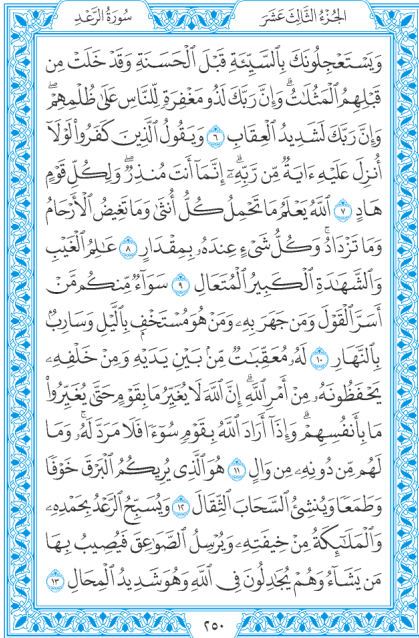 سُورَةُ الرَّعْدِ الجُزْءُ الثَّالِثَ عَشَرَ
وَيَسْتَعْجِلُونَكَ بِالسَّيِّئَةِ قَبْلَ الْحَسَنَةِ وَقَدْ خَلَتْ مِن
قَبْلِهِمُ الْمَثُلَاتُ ۗ وَإِنَّ رَبَّكَ لَذُو مَغْفِرَةٍ لِّلنَّاسِ عَلَىٰ ظُلْمِهِمْ ۖ
وَإِنَّ رَبَّكَ لَشَدِيدُ الْعِقَابِ ٦ وَيَقُولُ الَّذِينَ كَفَرُوا لَوْلَا
أُنزِلَ عَلَيْهِ ءَايَةٌ مِّن رَّبِّهِۦٓ ۗ إِنَّمَا أَنتَ مُنذِرٌ ۖ وَلِكُلِّ قَوْمٍ
هَادٍ ٧ اللَّهُ يَعْلَمُ مَا تَحْمِلُ كُلُّ أُنثَىٰ وَمَا تَغِيضُ الْأَرْحَامُ
وَمَا تَزْدَادُ ۖ وَكُلُّ شَىْءٍ عِندَهُۥ بِمِقْدَارٍ ٨ عَٰلِمُ الْغَيْبِ
وَالشَّهَٰدَةِ الْكَبِيرُ الْمُتَعَالِ ٩ سَوَآءٌ مِّنكُم مَّنْ
أَسَرَّ الْقَوْلَ وَمَن جَهَرَ بِهِۦ وَمَنْ هُوَ مُسْتَخْفٍ بِالَّيْلِ وَسَارِبٌ
بِالنَّهَارِ ١٠ لَهُۥ مُعَقِّبَٰتٌ مِّنۢ بَيْنِ يَدَيْهِ وَمِنْ خَلْفِهِۦ
يَحْفَظُونَهُۥ مِنْ أَمْرِ اللَّهِ ۗ إِنَّ اللَّهَ لَا يُغَيِّرُ مَا بِقَوْمٍ حَتَّىٰ يُغَيِّرُوا
مَا بِأَنفُسِهِمْ ۗ وَإِذَا أَرَادَ اللَّهُ بِقَوْمٍ سُوٓءًا فَلَا مَرَدَّ لَهُۥ ۚ وَمَا
لَهُم مِّن دُونِهِۦ مِن وَالٍ ١١ هُوَ الَّذِى يُرِيكُمُ الْبَرْقَ خَوْفًا
وَطَمَعًا وَيُنشِئُ السَّحَابَ الثِّقَالَ ١٢ وَيُسَبِّحُ الرَّعْدُ بِحَمْدِهِۦ
وَالْمَلَٰٓئِكَةُ مِنْ خِيفَتِهِۦ وَيُرْسِلُ الصَّوَٰعِقَ فَيُصِيبُ بِهَا
مَن يَشَآءُ وَهُمْ يُجَٰدِلُونَ فِى اللَّهِ وَهُوَ شَدِيدُ الْمِحَالِ ١٣
٢٥٠